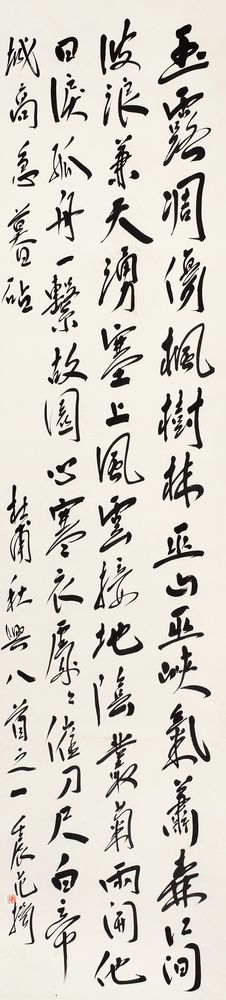 玉露凋傷楓樹林巫山巫峽氣蕭森江間
波浪兼天湧塞上風雲接地陰叢菊兩開他
日淚孤舟一繫故園心寒衣處々催刀尺白帝
城高急暮砧
杜甫秋興八首之一 壬辰范